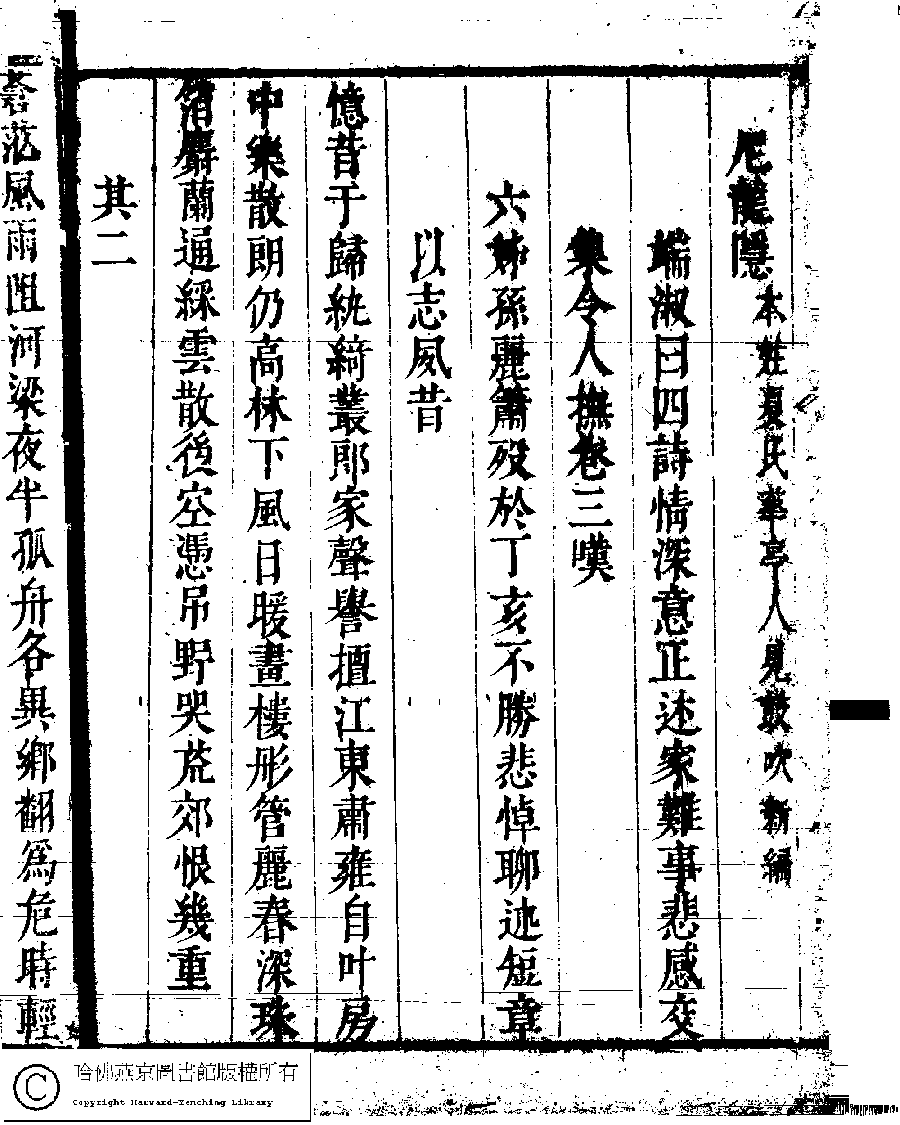 尼龍隱 本姓夏氏華亭人見鼓吹新編
端淑曰四詩情深意正述家難事悲感交
集令人撫卷三嘆
六姊孫麗簫歿於丁亥不勝悲悼聊述短章
以志夙昔
憶昔于歸紈綺叢郎家聲譽擅江東肅雍自叶房
中樂散朗仍高林下風日暖畫樓彤管麗春深珠
箔麝蘭通綵雲散後空憑吊野哭荒郊恨幾重
其二
莽風雨阻河梁夜半孤舟各異鄉翻為危時輕
哈佛燕京圖書館版權所有
Copyright Harvard-Yenching Library